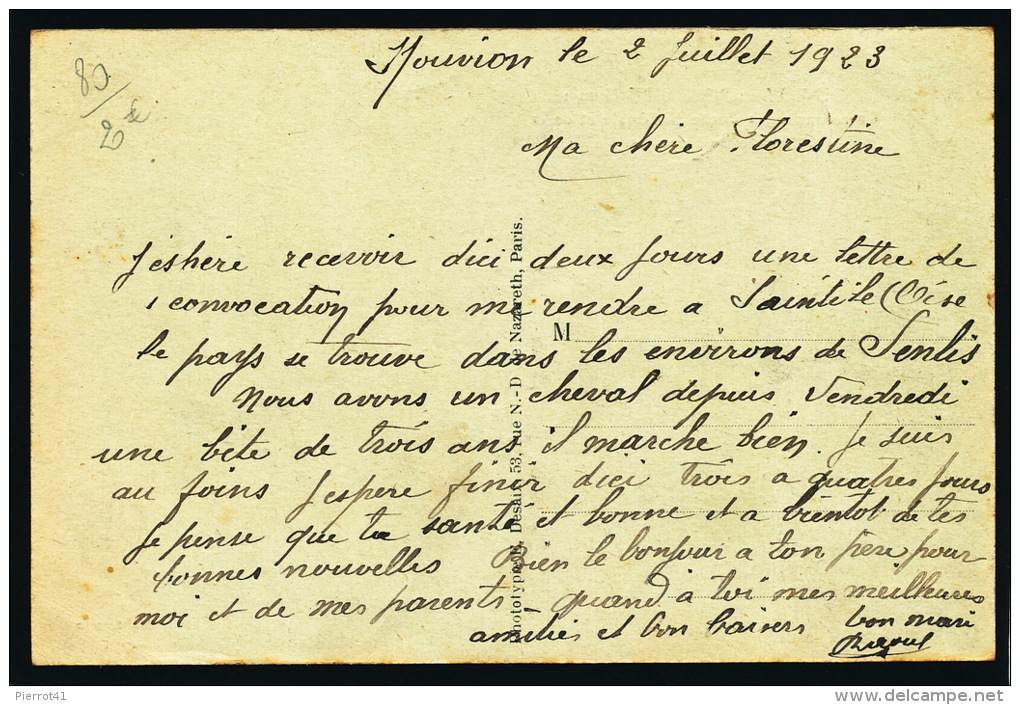 Nouvion le 2 Juillet 1923
80
20
Ma chère Florestine
J'eshère recevoir dici deux jours une lettre de
convocation pour me rendre a (Oise
le pays se trouve dans les environs de Senlis
Nous avons un cheval depuis Vendredi
une bête de trois ans il marche bien. Je suis
au foins J'espere finir dici trois a quatres jours
Je pense que ta santé et bonne et a bientot de tes
bonnes nouvelles Bien le bonjour a ton père pour
moi et de mes parents, quand à toi mes meilleures
amitiés et bon baisers
ton mari
Raoul
M
Phototypie Desaix, 53, rue N.-D. de Nazareth, Paris.
Pierrot41
http://www.delcampe.net